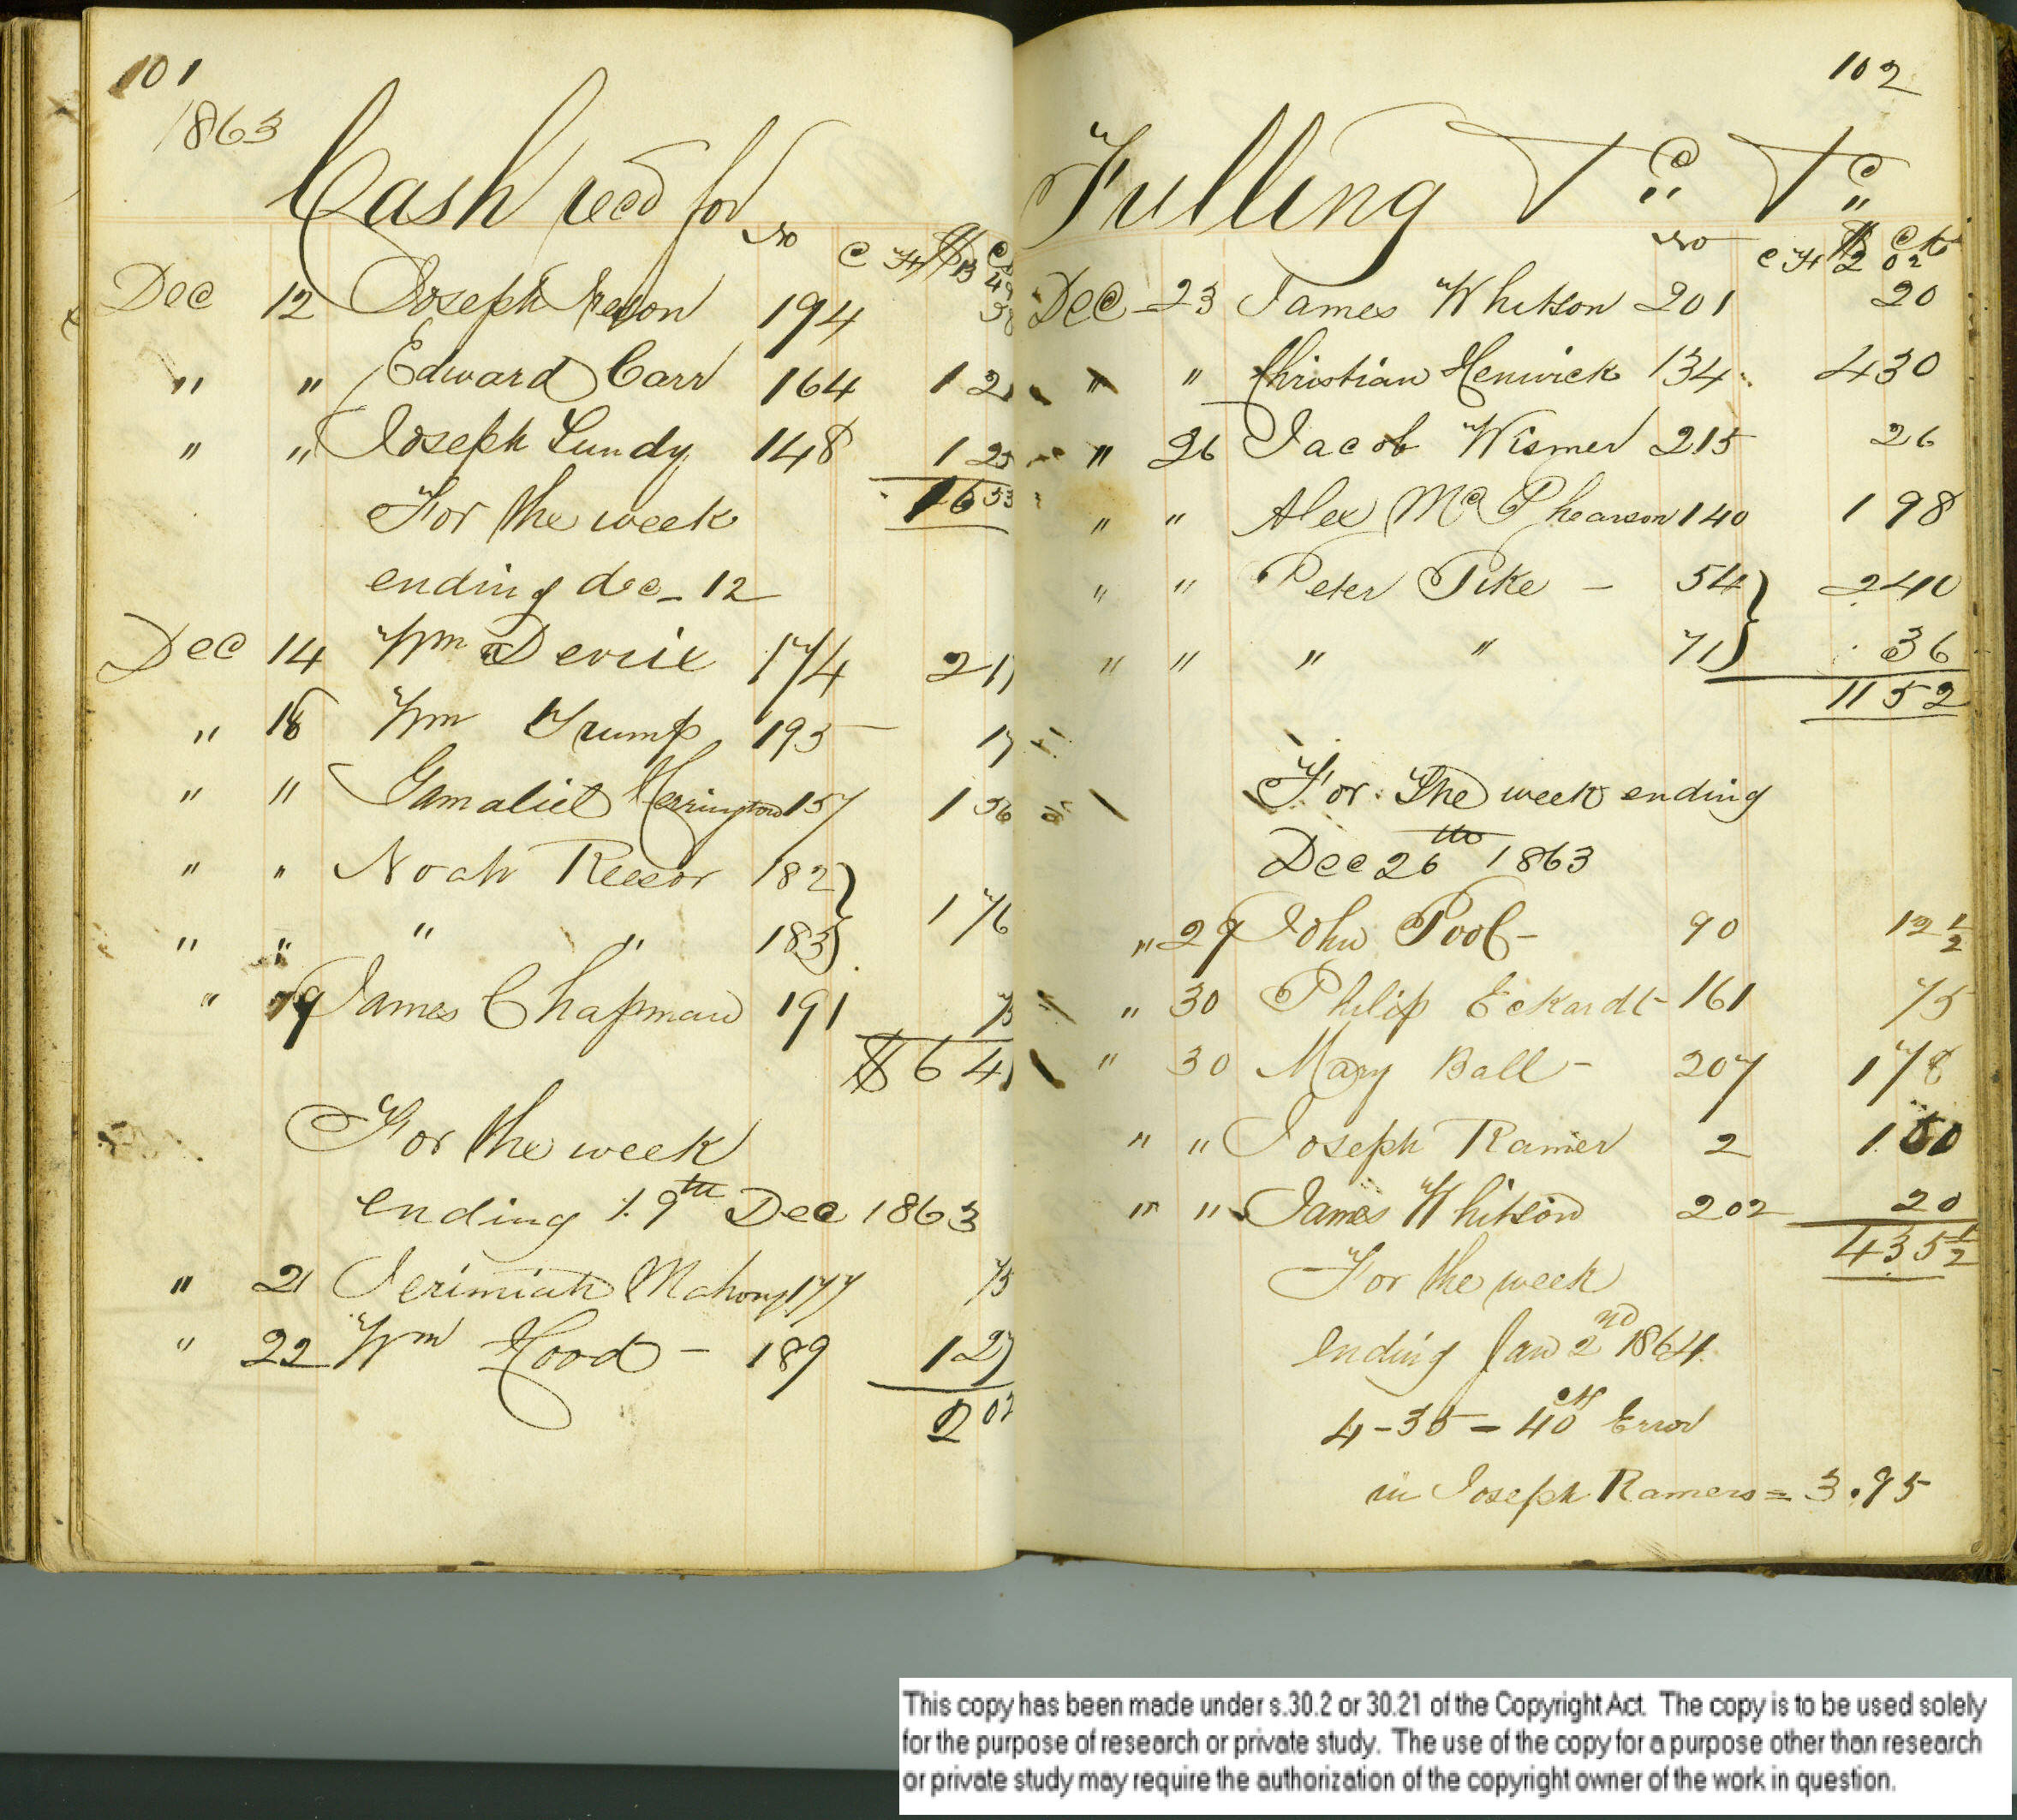 101
1863
Cash recd for
No C H $ C
13 49
Dec 12 Joseph 194 38
" " Edward Carr 164 1 2
" " Joseph Lundy 148 1 25
16 53
For the week
ending dec - 12
Dec 14 Wm 174 2 1
" 18 Wm Trump 195 - 17
" " Gamaliel Herrington 157 1 56
" " Noah Reesor 182 }
" " " " 183 } 1 76
" 19 James Chapman 191 75
$ 6 41
For the week
ending 19th Dec 1863
" 21 Jerimiah Mahony 177 75
" 22 Wm Hood - 189 1 27
2 02
102
Fulling &c &c
No C H $ cts
2 02
Dec - 23 James Whitson 201 20
" " Christian Henwick 134 4 30
" 26 Jacob Wismer 215 26
" " Alex McPhearson 140 1 98
" " Peter Pike - 54 } 2 40
" " " " 71 } 36
11 52
For The week ending
Dec 26th 1863
" 29 John Pool - 90 12 1/2
" 30 Philip Eckardt - 161 75
" 30 Mary Ball - 207 1 78
" " Joseph Ramer 2 1 50
" " James Whitson 202 20
4 35 1/2
For the week
ending Jan 2nd 1864
4-35 - 40 cts Error
in Joseph Ramers = 3.95
This copy has been made under s.30.2 or 30.21 of the Copyright Act. The copy is to be used solely
for the purpose of research or private study. The use of the copy for a purpose other than research
or private study may require the authorization of the copyright owner of the work in question.